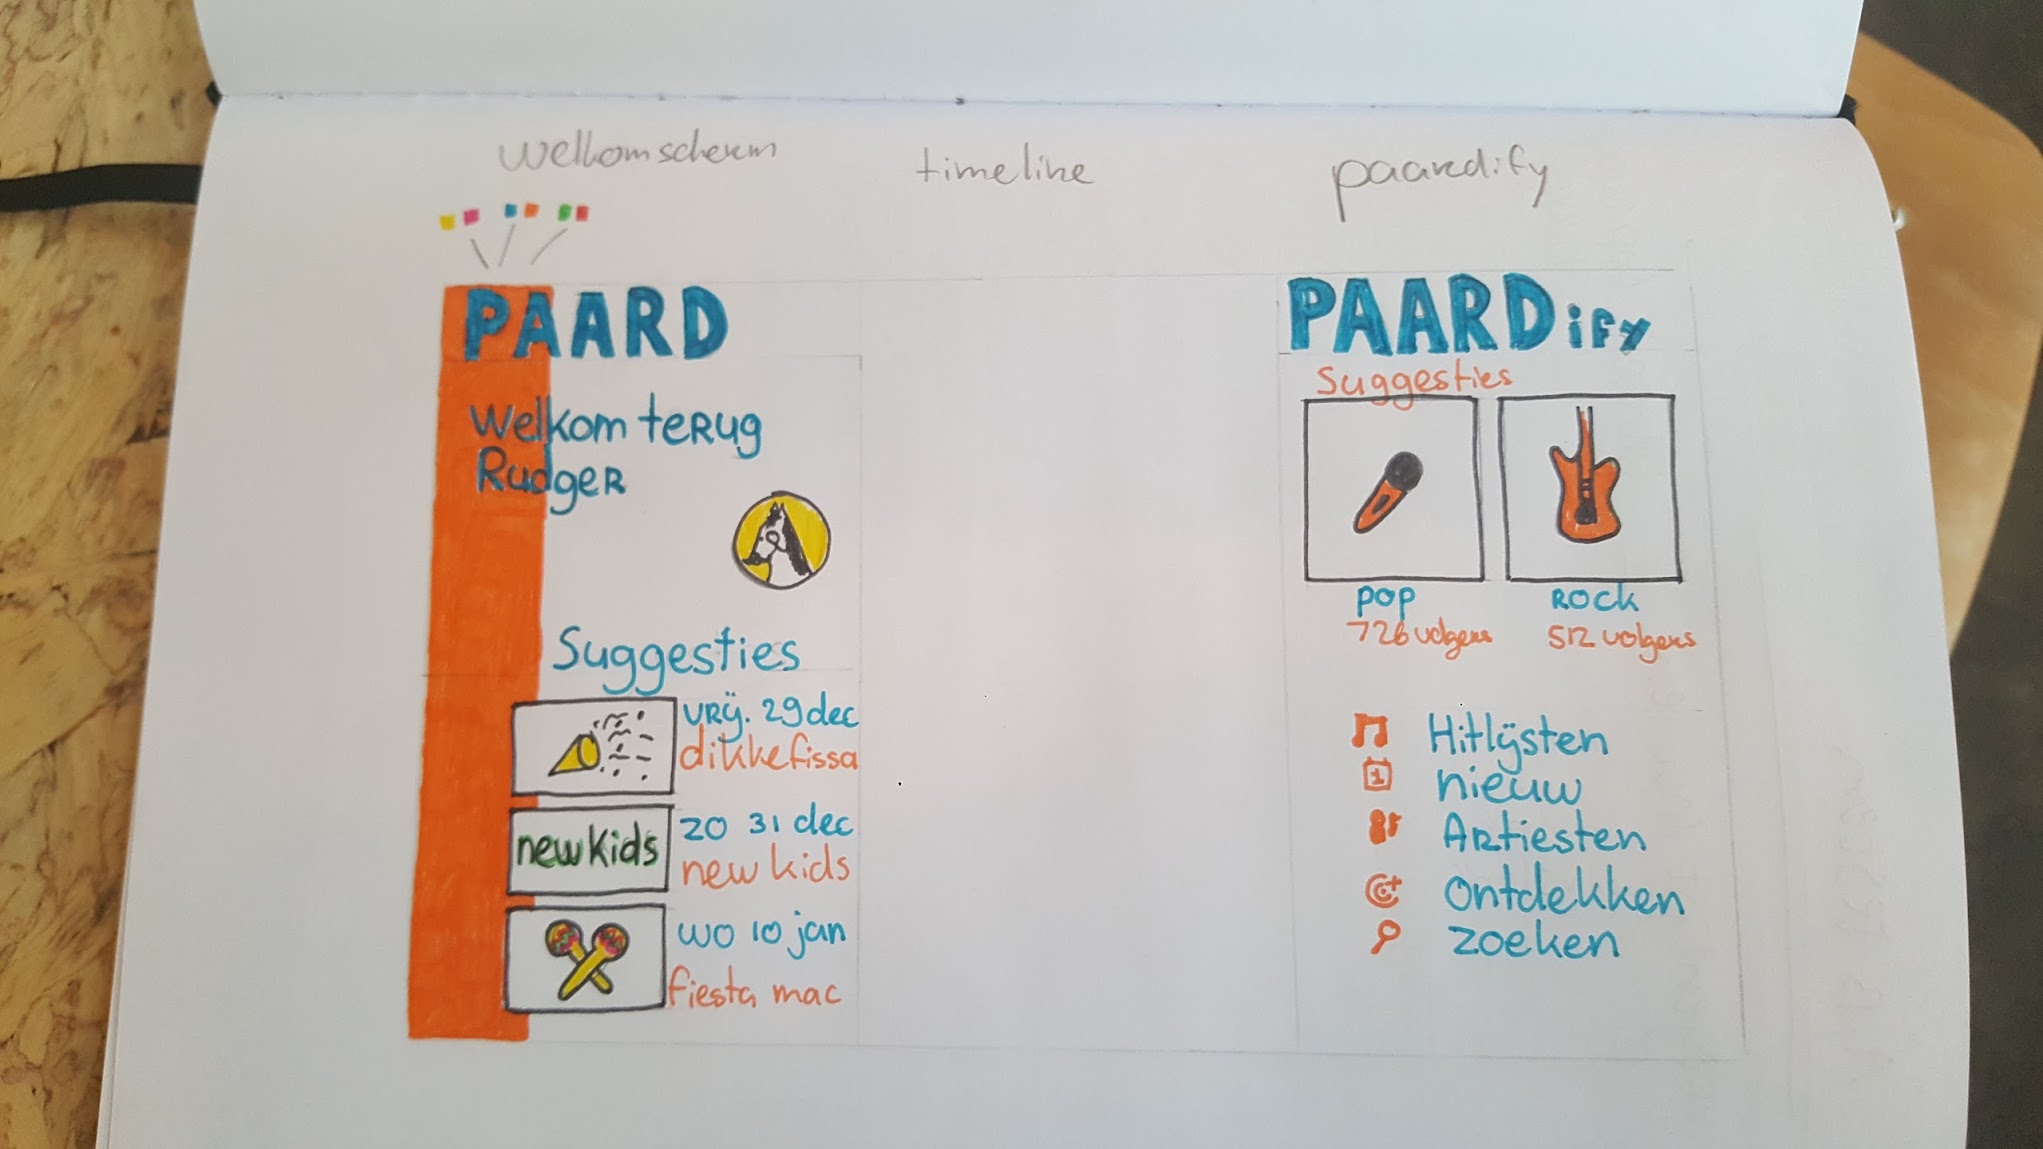 welkomscherm
timeline
paardify
PAARD
Welkom teRug
RudgeR
Suggesties
vRij. 29 dec
dikke fissa
new kids
zo 31 dec
new kids
wo 10 jan
fiesta mac
PAARDify
Suggesties
pop
726 volgers
Rock
512 volgers
Hitlijsten
1
nieuw
ARtiesten
ontdekken
zoeken